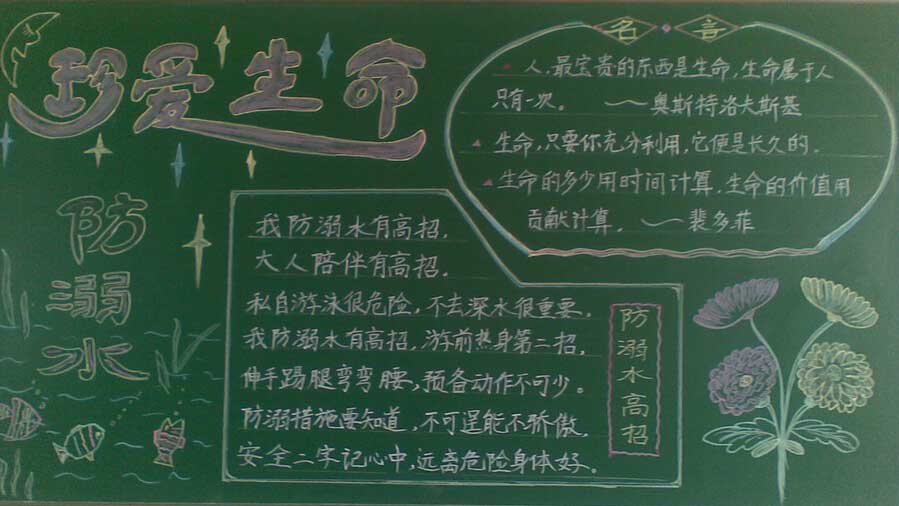 珍爱生命
名言
人,最宝贵的东西是生命,生命属于人
只有一次。 ——奥斯特洛夫斯基
生命,只要你充分利用,它便是长久的。
生命的多少用时间计算,生命的价值用
贡献计算。 ——裴多菲
防溺水
我防溺水有高招,
大人陪伴有高招,
私自游泳很危险,不去深水很重要。
我防溺水有高招,游前热身第二招,
伸手踢腿弯弯腰,预备动作不可少。
防溺措施要知道,不可逞能不骄傲,
安全二字记心中,远离危险身体好。
防溺水高招